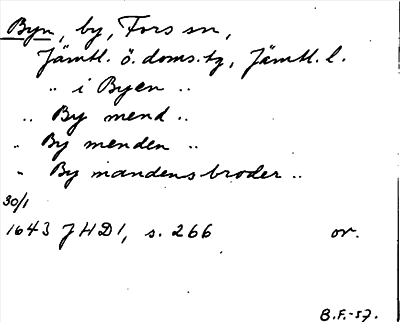 Byn, by, Fors sn,
Jämtl. ö. doms.tg, Jämtl. l.
.. i Byen ..
.. By mend ..
.. By menden ..
.. By mandens broder ..
30/1
1643 JHD1, s. 266 or.
B.F.-57.